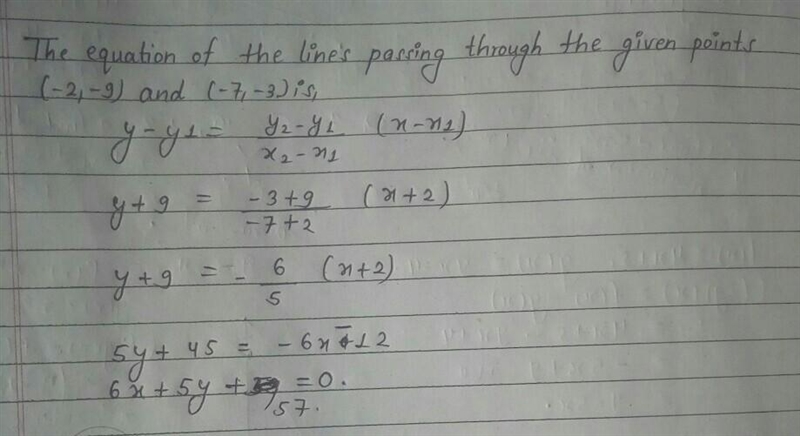 The equation of the line's passing through the given points
(-2,-9) and (-7,-3) is,
y-y1 = y2-y1 / x2-x1 (x-x1)
y+9 = -3+9 / -7+2 (x+2)
y+9 = - 6/5 (x+2)
5y+45 = -6x-12
6x+5y+ =0.
57.